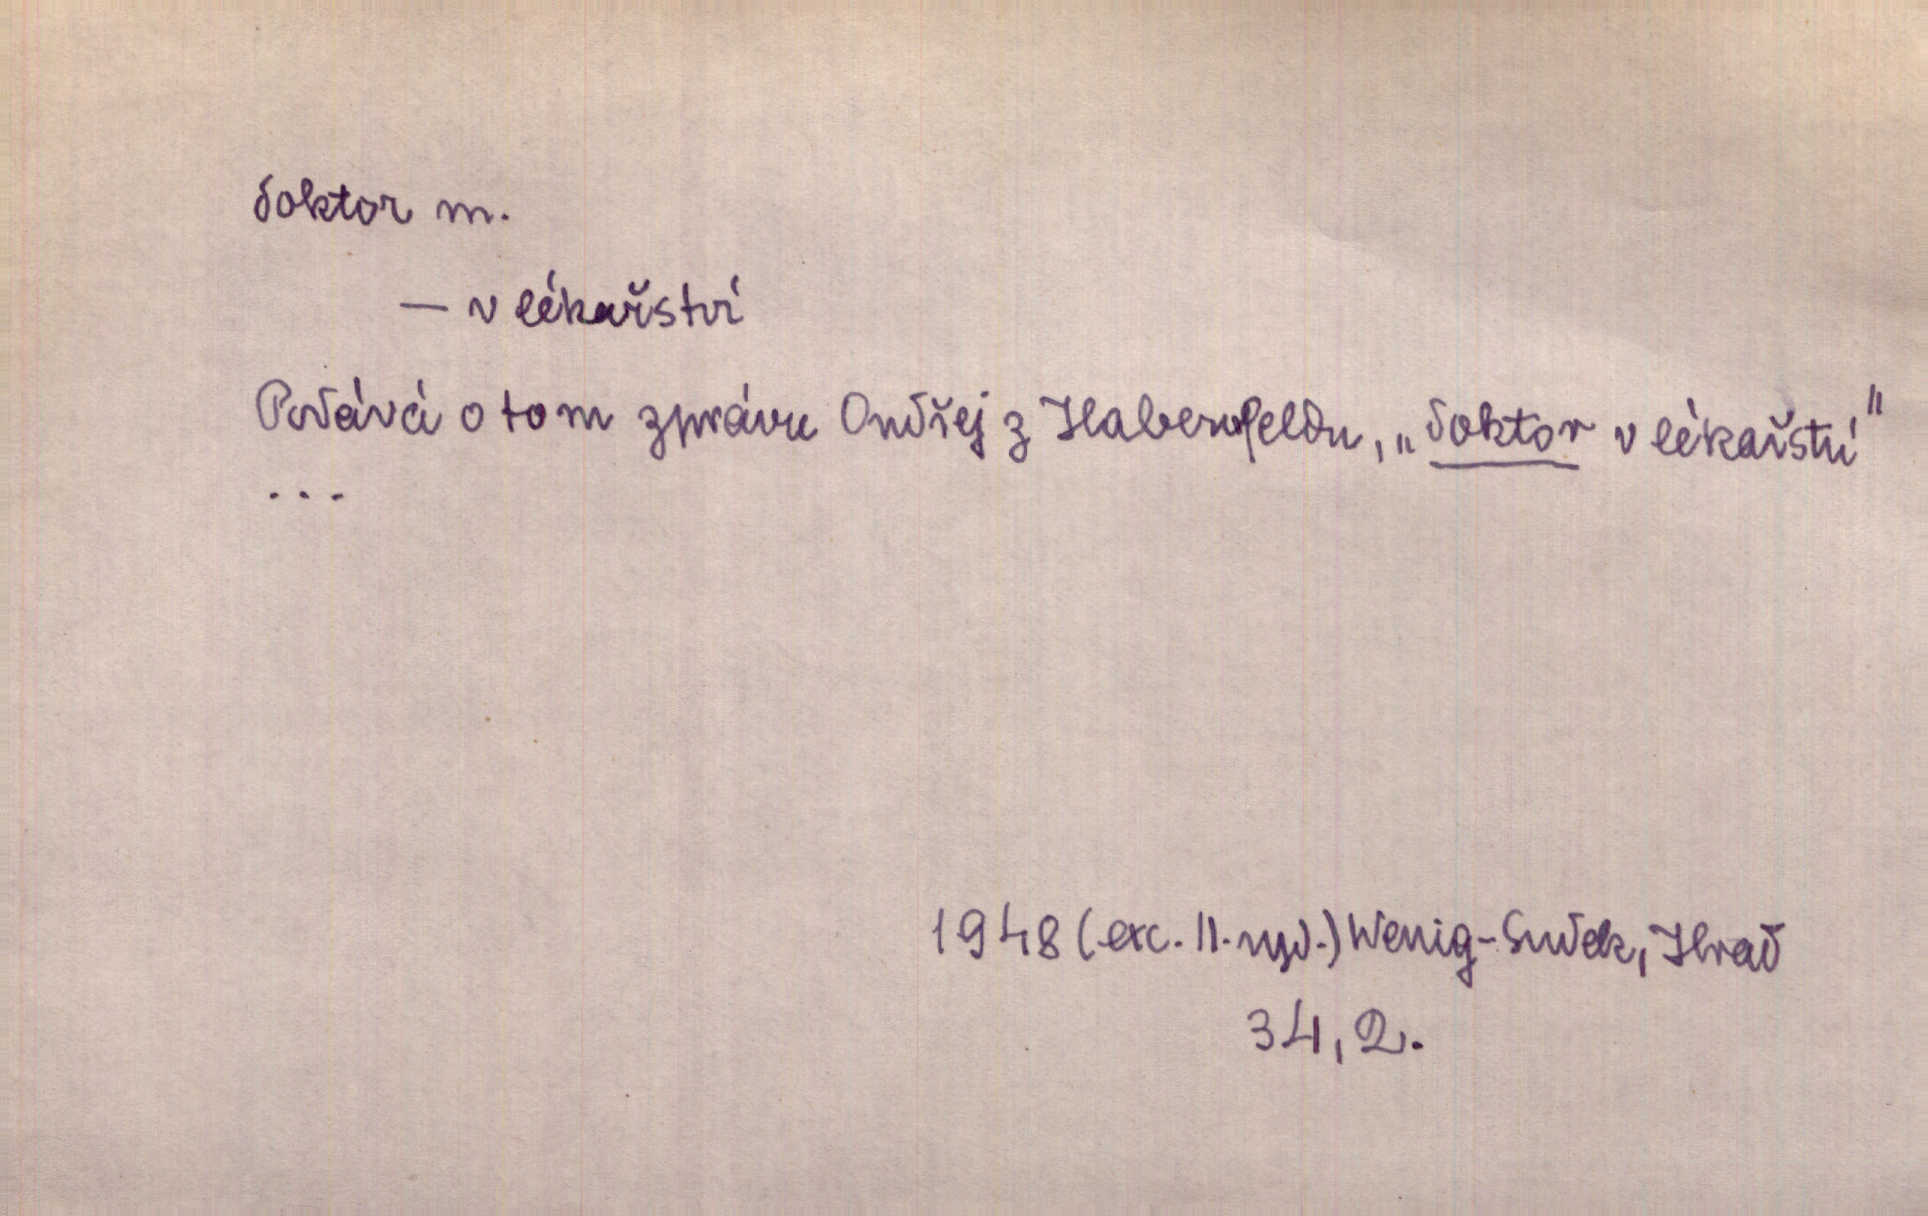 doktor m.
— v lékařství
Podává o tom zprávu Ondřej z Habernfeldu, „doktor v lékařství"
...
1948 (exc. II. vyd.) Wenig-Sudek, Hrad
34, 2.